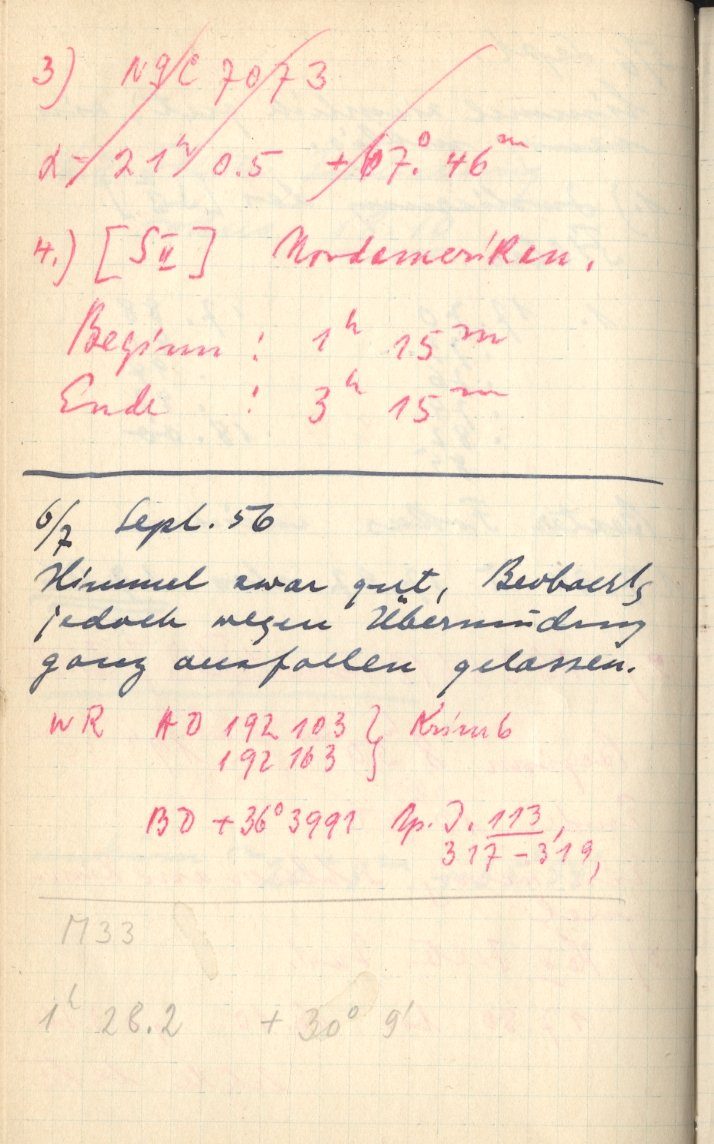 3) NGC 7073
α = 21ʰ 0.5 +67.° 46ᵐ
4.) [SII] Nordamerikan.
Beginn : 1ʰ 15ᵐ
Ende : 3ʰ 15ᵐ
6/7 Sept. 56
Himmel zwar gut, Beobachtg
jedoch wegen Übermüdung
ganz ausfallen gelassen.
WR HD 192 103 } Krimb
192 163
BD +36° 3991 Ap. J. 113,
317 - 319,
M33
1ʰ 28.2 + 30° 9'